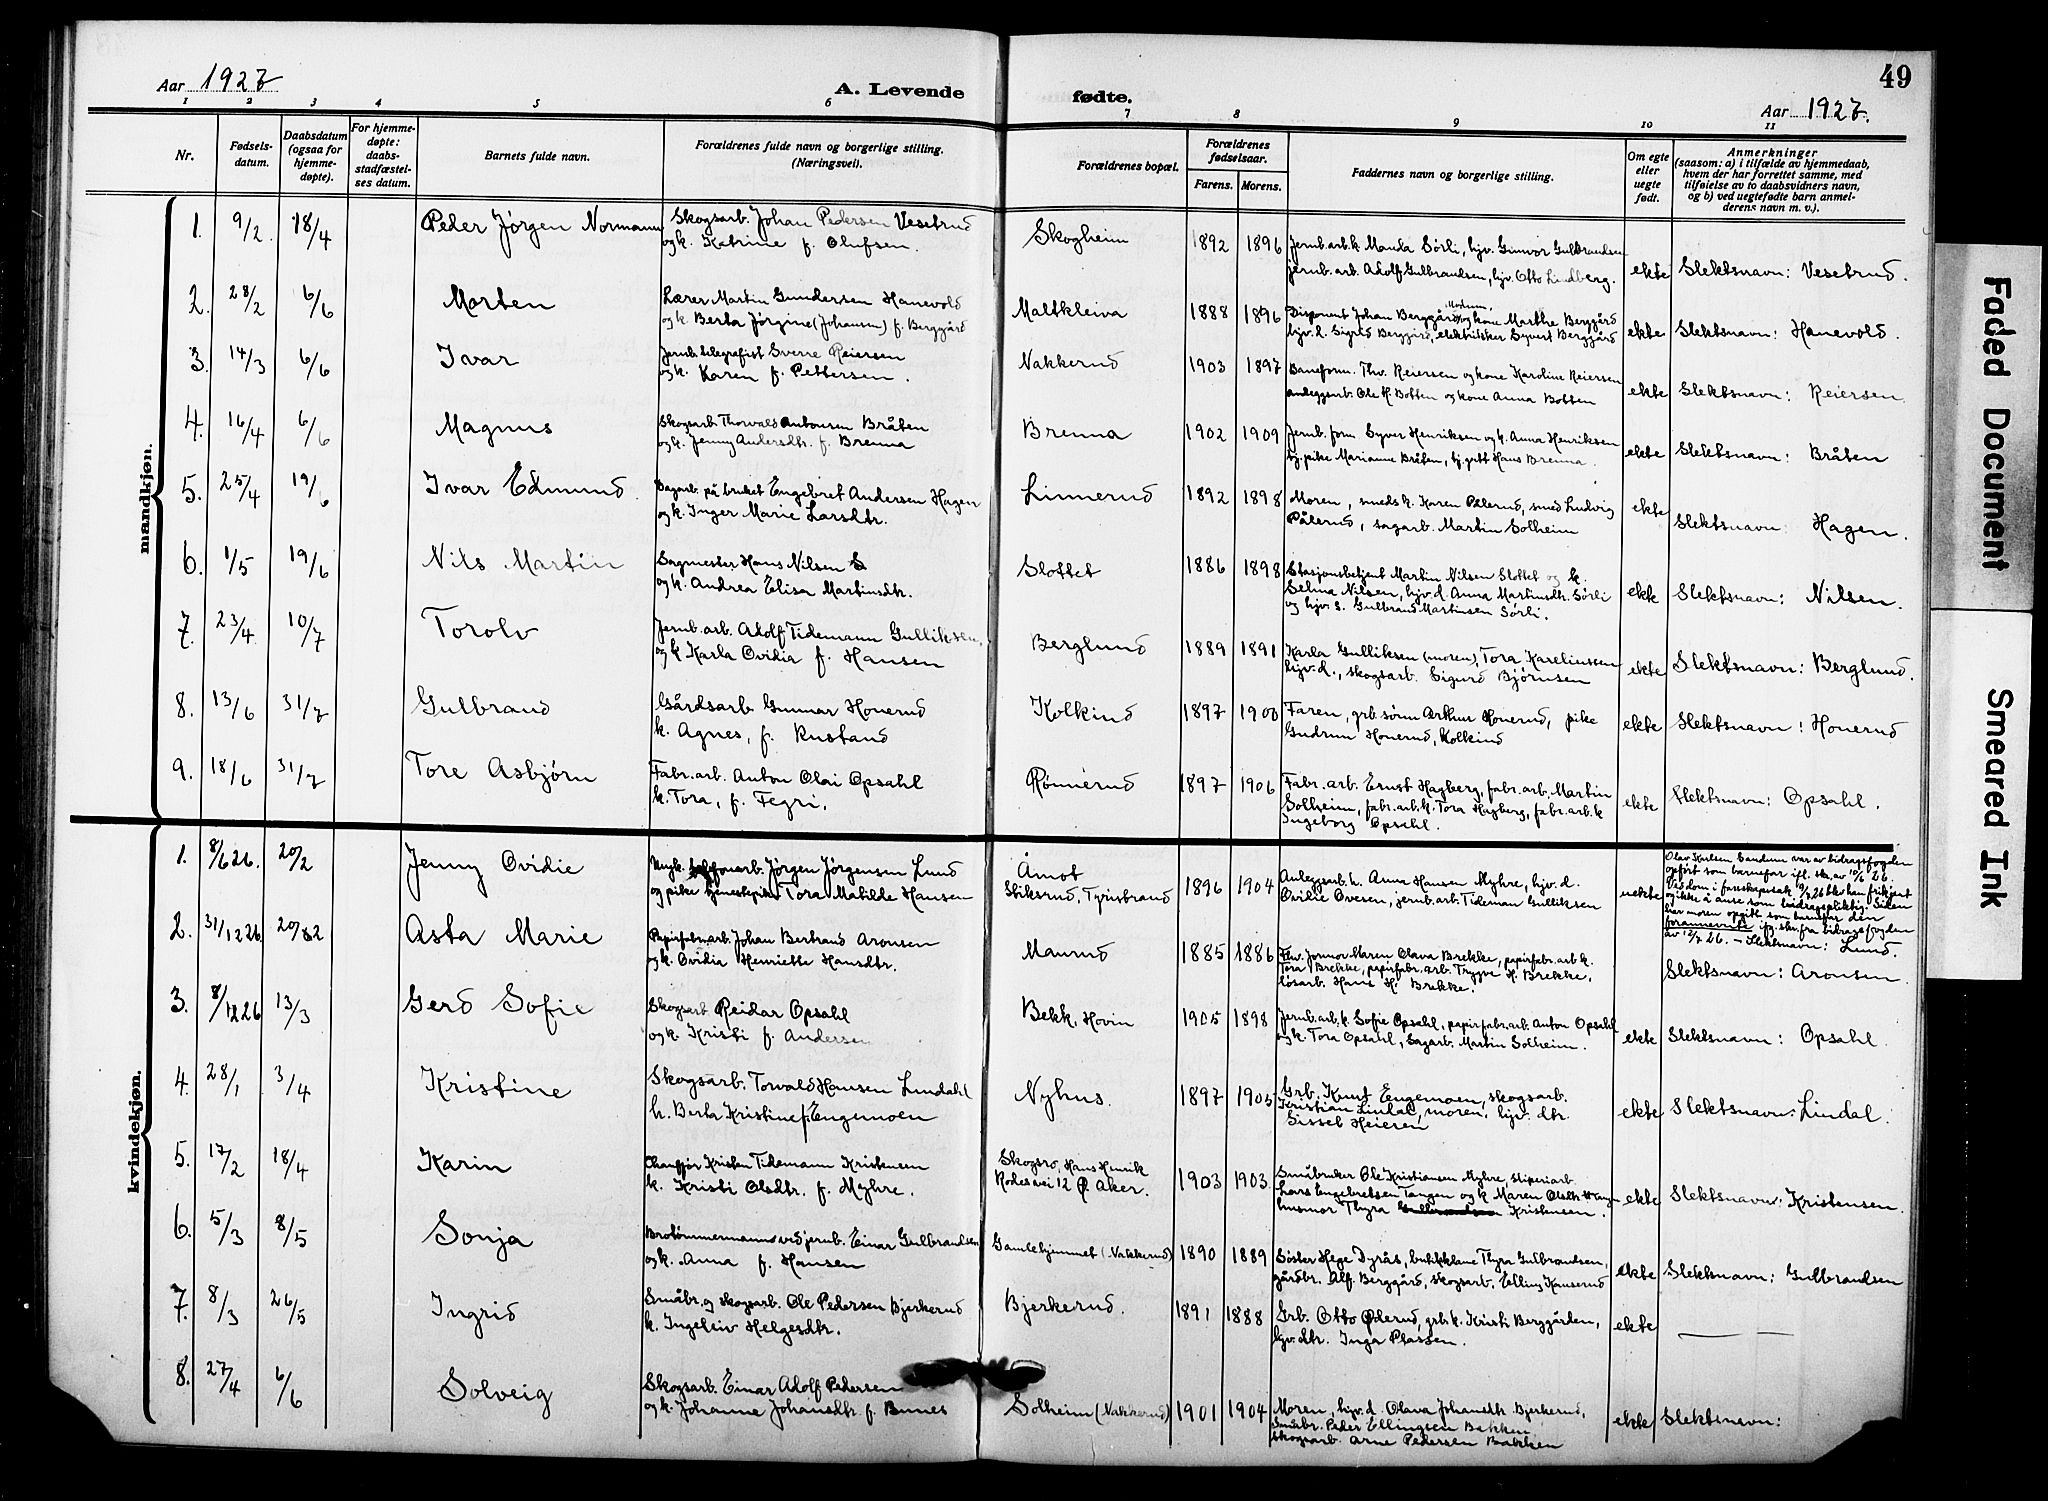 49
Aar 1927
A. Levende fødte.
Aar 1927.
1 2 3 4 5 6 7 8 9 10 11
Nr.
Fødsels-
datum.
Daabsdatum
(ogsaa for
hjemme-
døpte).
For hjemme-
døpte:
daabs-
stadfæstel-
ses datum.
Barnets fulde navn.
Forældrenes fulde navn og borgerlige stilling.
(Næringsvei).
Forældrenes bopæl.
Forældrenes
fødselsaar.
Farens. Morens.
Faddernes navn og borgerlige stilling.
Om egte
eller
uegte
født.
Anmerkninger
(saasom: a) i tilfælde av hjemmedaab,
hvem der har forrettet samme, med
tilføielse av to daabsvidners navn,
og b) ved uegtefødte barn anmel-
derens navn m. v.).
mandkjøn.
1. 9/2. 18/4 Peder Jörgen Normann Skogsarb. Johan Pedersen Vesetrud
og k. Katrine f. Olufsen.
Skogheim 1892 1896 Jernb.arb.k. Manda Sörli, hjv. Gunvor Gulbrandsen
jernb. arb. Adolf Gulbrandsen, hjv. Otto Lindberg.
ekte Slektsnavn: Vesetrud.
2. 28/2 6/6 Morten Lærer Martin Gundersen Hanevold
og k. Berta Jörgine (Johansen) f. Berggård
Maltkleiva 1888 1896 Disponent Johan Berggård, Modum og kone Marthe Berggård
hjv. d. Sigrid Berggård, elektriker Syvert Berggård
ekte Slektsnavn: Hanevold.
3. 14/3 6/6 Ivar Jernb. telegrafist Sverre Reiersen
og k. Karen f. Pettersen.
Nakkerud 1903 1897 Baneform. Thv. Reiersen og kone Karoline Reiersen
anleggsarb. Ole H. Botten og kone Anna Botten
ekte Slektsnavn: Reiersen
4. 16/4 6/6 Magnus Skogsarb. Thorvald Antonsen Bråten
og k. Jenny Andersdtr. f. Brenna
Brenna 1902 1909 Jernb. form Syver Henriksen og k. Anna Henriksen
tj. pike Marianne Bråten, tj. gutt Hans Brenna.
ekte Slektsnavn: Bråten
5. 25/4 19/6 Ivar Edmund. Sagarb. på bruket Engebret Andersen Hagen
og k. Inger Marie Larsdtr.
Linnerud 1892 1898 Moren, smeds k. Karen Pålerud, smed Ludvig
Pålerud, sagarb. Martin Solheim
ekte Slektsnavn: Hagen.
6. 1/5 19/6 Nils Martin Sagmester Hans Nilsen
og k. Andrea Elisa Martinsdtr.
Slottet 1886 1898 Stasjonsbetjent Martin Nilsen Slottet og k.
Selma Nilsen, hjv. d. Anna Martinsdtr. Sörli
og hjv. s. Gulbrand Martinsen Sörli.
ekte Slektsnavn: Nilsen.
7. 23/4. 10/7 Torolv Jernb. arb. Adolf Tidemann Gulliksen,
og k Karla Ovidia f. Hansen
Berglund 1889 1891 Karla Gulliksen (moren), Tora Kareliussen
hjv. d., skogsarb. Sigurd Björnsen
ekte Slektsnavn: Berglund.
8. 13/6 31/7 Gulbrand Gårdsarb. Gunnar Honerud
k. Agnes, f. Rustand
Kolkind 1897 1900 Faren, grb. sönn Arthur Honerud, pike
Gudrun Honerud, Kolkind
ekte Slektsnavn: Honerud
9. 18/6 31/7 Tore Asbjörn Fabr. arb. Anton Olai Opsahl
k. Tora, f. Fegri.
Rönnerud 1897 1906 Fabr. arb. Ernst Hagberg, fabr. arb. Martin
Solheim, fabr. arb. k. Tora Hagberg, fabr. arb. k
Ingeborg Opsahl.
ekte Slektsnavn: Opsahl.
kvindekjøn.
1. 8/6 26. 20/2 Jenny Ovidie Jörgen Jörgensen Lund
og pike tjenestepike Tora Matilde Hansen
Åmot
Stiksrud, Tyristrand 1896 1904 Anleggsarb. h. Anna Hansen Myhre, hjv. d.
Ovidie Ovesen, jernb. arb. Tideman Gulliksen
uekte Olav Karlsen Sandum var av bidragsfogden
opfört som barnefar ifl. skr. av 10/6 26.
Ved dom i farskapssak 9/7 26 blev han frikjent
og ikke å anse som bidragspliktig. Siden
har moren opgitt som barnefar den
forannevnte ifg. skr. fra bidragsfogden
av 12/7 26. – Slektsnavn: Lund.
2. 31/12 26. 20/2 Asta Marie Papirfabr.arb. Johan Bertrand Aronsen
og k. Ovidia Henriette Hansdtr.
Maurud 1885 1886 Jonnor Maren Olava Brekke, papirfabr. arb k.
Tora Brekke, papirfabr. arb. Trygve H. Brekke,
lösarb. Hans H. Brekke.
Slektsnavn: Aronsen
3. 8/12 26 13/3 Gerd Sofie Skogsarb. Reidar Opsahl
og k. Kristi f. Andersen
Bekk, Hovin 1905 1898 Jernb. arb. k. Sofie Opsahl, papirfabr. arb. Anton Opsahl
og k. Tora Opsahl, Sagarb. Martin Solheim.
ekte Slektsnavn: Opsahl.
4. 28/1 3/4 Kristine Skogsarb. Torvald Hansen Lundahl
h. Berta Kristine f. Engemoen
Nyhus. 1897 1905 Grb. Knut Engemoen, skogsarb.
Kristian Lindal, moren, hjv. dtr.
Sissel Heieren
ekte Slektsnavn: Lindal.
5. 17/2 18/4 Karin Chaufför Kristen Tidemann Kristensen
k. Kristi Olsdtr. f. Myhre.
Skogsro, Hans Henrik
Rodes vei 12 Ø. Aker. 1903 1903. Småbruker Ole Kristiansen Myhre, sliperiarb.
Lars Engebretsen Tangen og k Maren Olsdtr Tangen
husmor Thyra Kristensen.
ekte Slektsnavn: Kristensen.
6. 5/3 8/5 Sonja Brotömmermann ved jernb. Einar Gulbrandsen
og k. Anna f. Hansen
Gamlehjemmet (Nakkerud) 1890 1889 Söster Hege Dyrås, butikkdame Thyra Gulbrandsen,
gårdbr. Alf. Berggård, skogsarb. Elling Kanserud
ekte Slektsnavn: Gulbrandsen
7. 8/3 26/5 Ingrid Småbr. og skogsarb. Ole Pedersen Bjerkerud
k. Ingeleiv Helgesdtr.
Bjerkerud. 1891 1888 Grb. Otto Ølerud, grb. k. Kristi Berggården,
hjv. dtr. Inga Plassen.
ekte — —
8. 27/4 6/6 Solveig Skogsarb. Einar Adolf Pedersen
og k. Johanne Johansdtr. f. Bunes
Solheim (Nakkerud) 1901 1904 Moren, hjv. d. Olava Johansdtr. Bjerkerud,
Småbr. Peder Ellingsen Bakken
skogsarb. Arne Pedersen Bakken
ekte Slektsnavn:
Faded Document
Smeared Ink